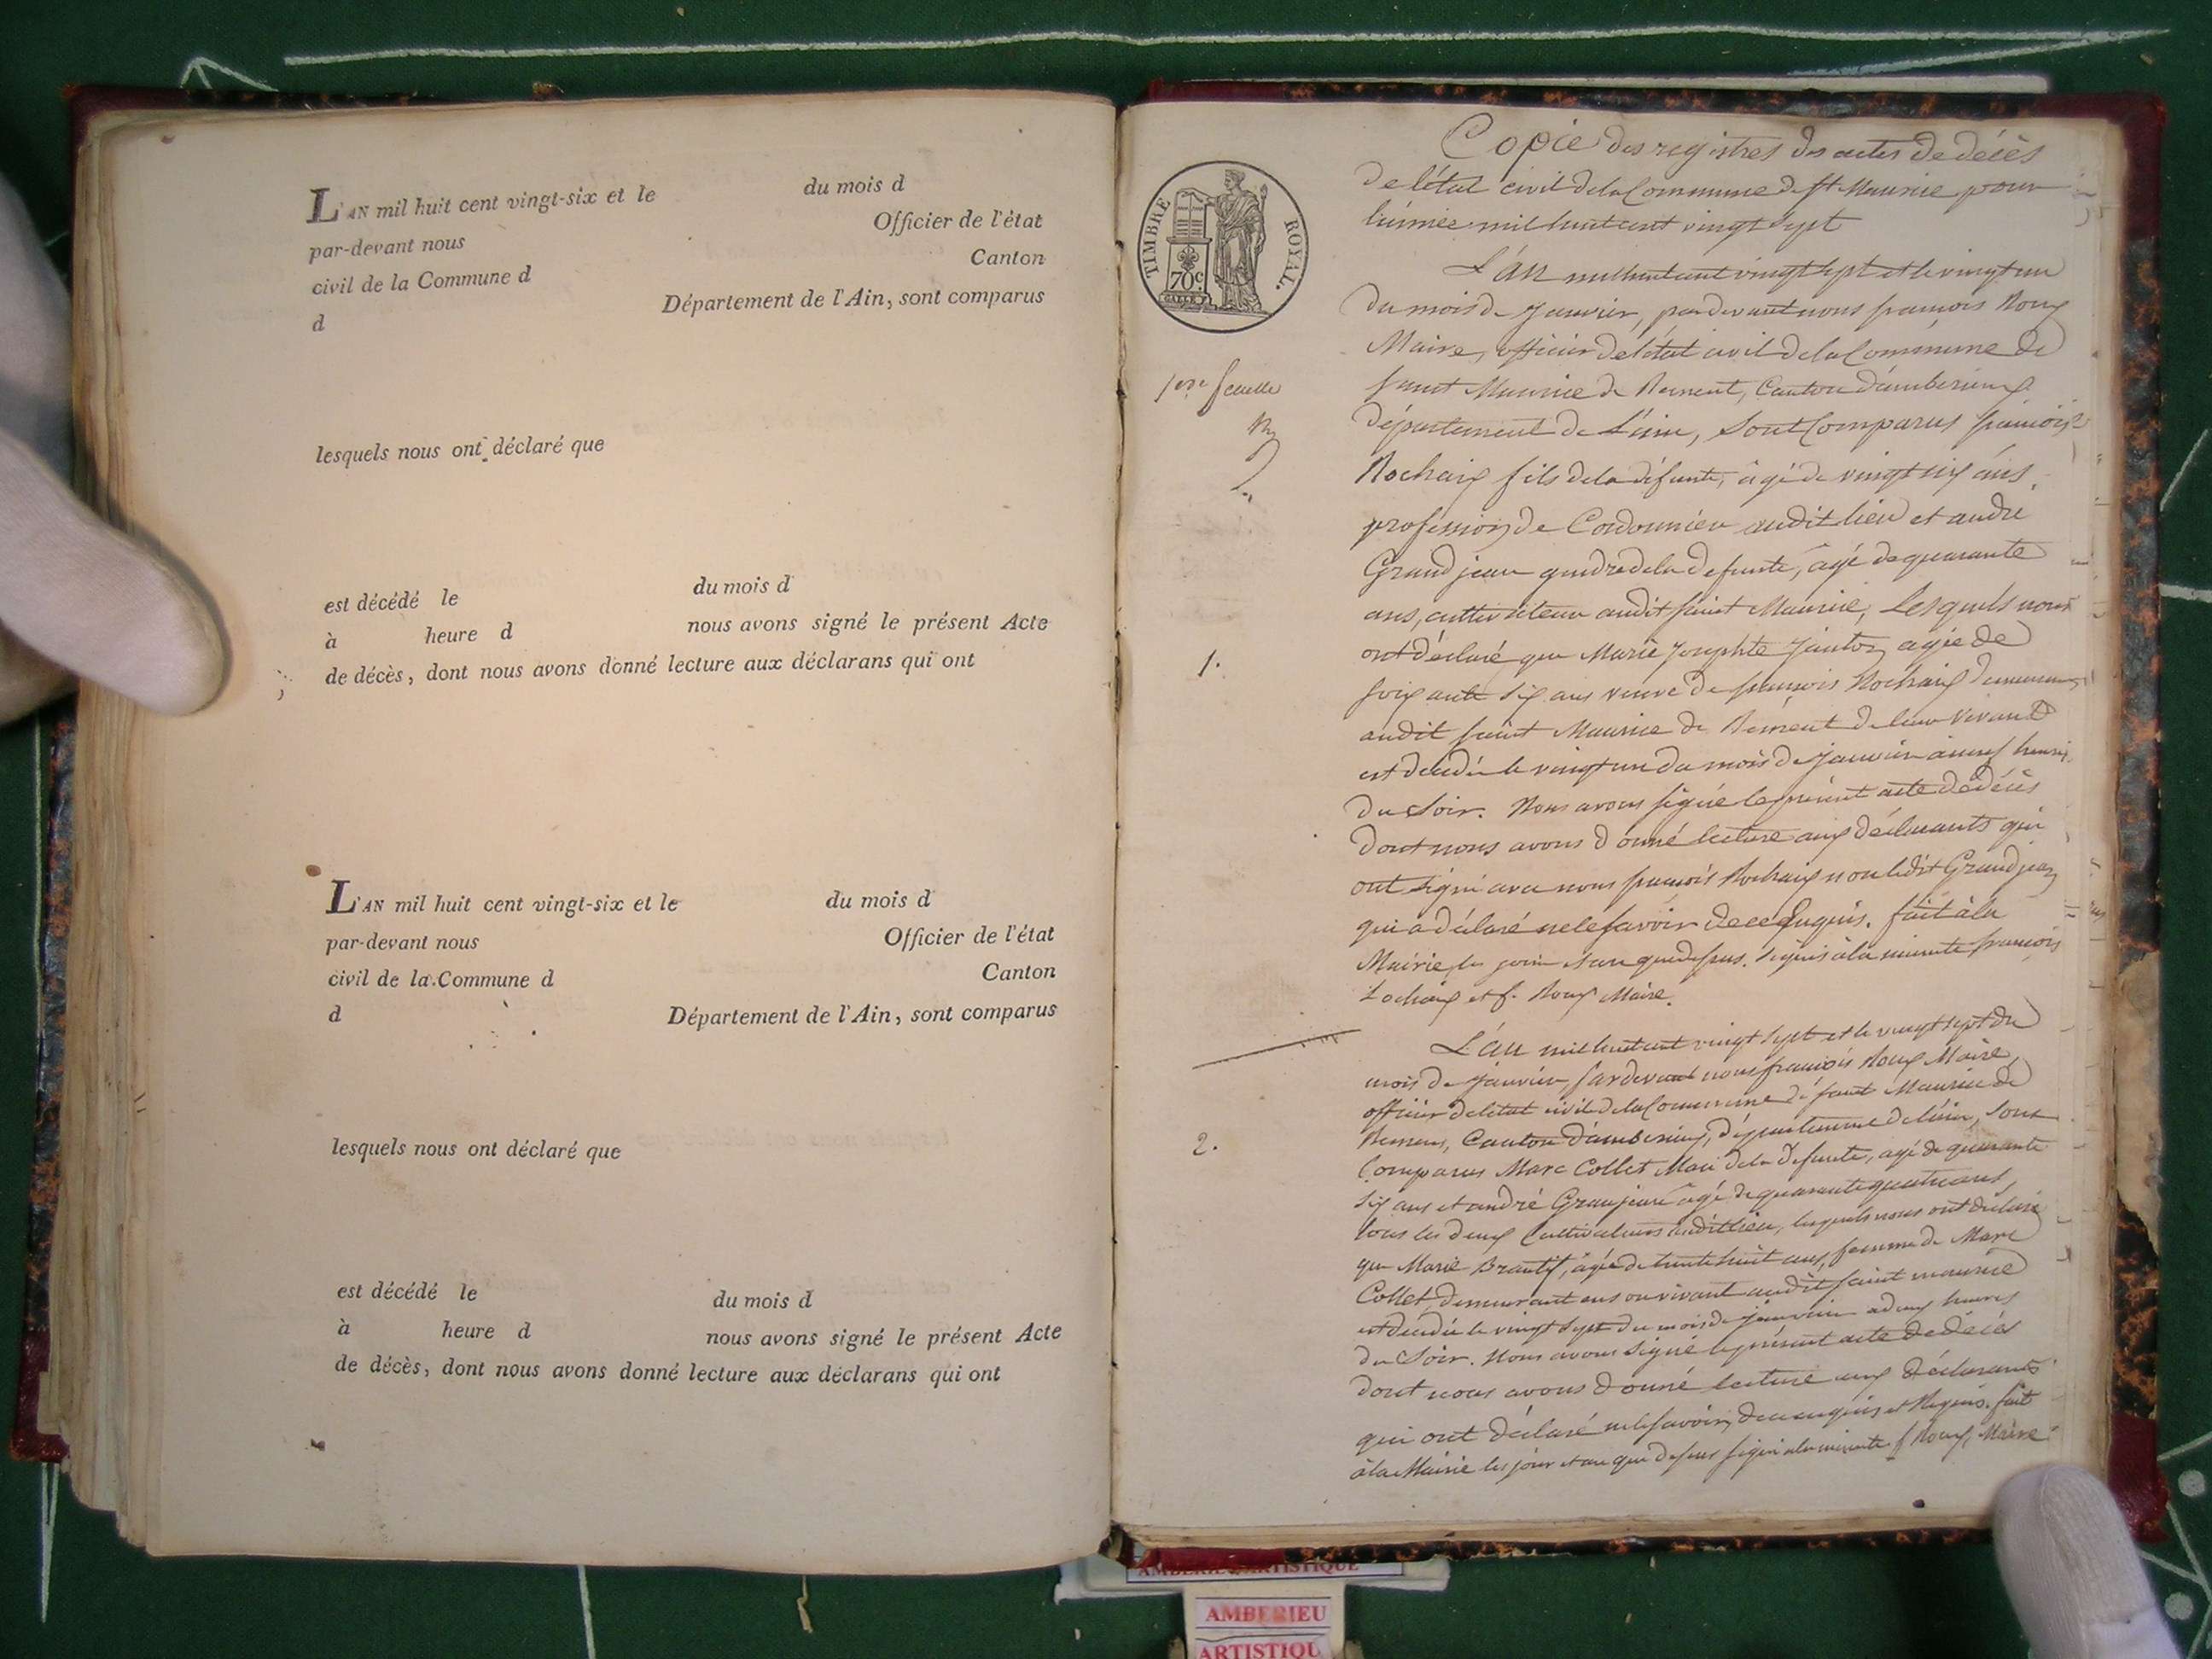 L'AN mil huit cent vingt-six et le du mois d
par-devant nous Officier de l'état
civil de la Commune d Canton
d Département de l'Ain, sont comparus
lesquels nous ont déclaré que
est décédé le du mois d
à heure d nous avons signé le présent Acte
de décès, dont nous avons donné lecture aux déclarans qui ont
L'AN mil huit cent vingt-six et le du mois d
par-devant nous Officier de l'état
civil de la Commune d Canton
d Département de l'Ain, sont comparus
lesquels nous ont déclaré que
est décédé le du mois d
à heure d nous avons signé le présent Acte
de décès, dont nous avons donné lecture aux déclarans qui ont
TIMBRE ROYAL.
70c
1ere feuille
Copie des registres des actes de décès
de l'état civil de la Commune de St Maurice pour
l'année mil huit cent vingt sept
L'an mil huit cent vingt sept et le vingt un
du mois de Janvier, par devant nous françois Roux
Maire, officier de l'état civil de la Commune de
saint Maurice de Rement, Canton d'ambérieux
département de l'ain, sont Comparus françois
Rochaix fils de la défunte, âgé de vingt six ans
profession de Cordonnier audit lieu et andré
Grandjean gendre de la defunte, âgé de quarante
ans, cultivateur audit saint Maurice, Lesquels nous
1. ont déclaré que Marie Josephte agée de
soixante six ans veuve de françois Rochaix
audit saint Maurice de Rement de leur vivant
est décédée le vingt un du mois de Janvier à neuf heures
du Soir. Nous avons signé le présent acte de décès
dont nous avons donné lecture aux déclarants qui
ont signé avec nous françois Rochaix non ledit Grandjean
qui a déclaré ne le savoir de ce Enquis. fait à la
Mairie, les jour et an que dessus. signés à la minute françois
Rochaix et f. Roux Maire.
L'an mil huit cent vingt sept et le vingt sept du
mois de Janvier, par devant nous françois Roux Maire
officier de l'état civil de la Commune de saint Maurice de
2. Remens, Canton d'ambérieux, département de l'ain, sont
Comparus Marc Collet Mari de la defunte, agé de quarante
six ans et andré Granjean âgé de quarante quatre ans,
tous les deux Cultivateurs audit lieu, lesquels nous ont déclaré
que Marie âgée de trente huit ans, femme de Marc
Collet, demeurant en son vivant audit saint maurice
est décédée le vingt sept du mois de janvier à deux heures
du Soir. Nous avons signé le présent acte de décès
dont nous avons donné lecture aux déclarants
qui ont déclaré ne le savoir, de ce enquis et Requis. fait
à la Mairie les jour et an que dessus signé à la minute f Roux, Maire
AMBERIEU ARTISTIQUE
AMBERIEU
ARTISTIQU